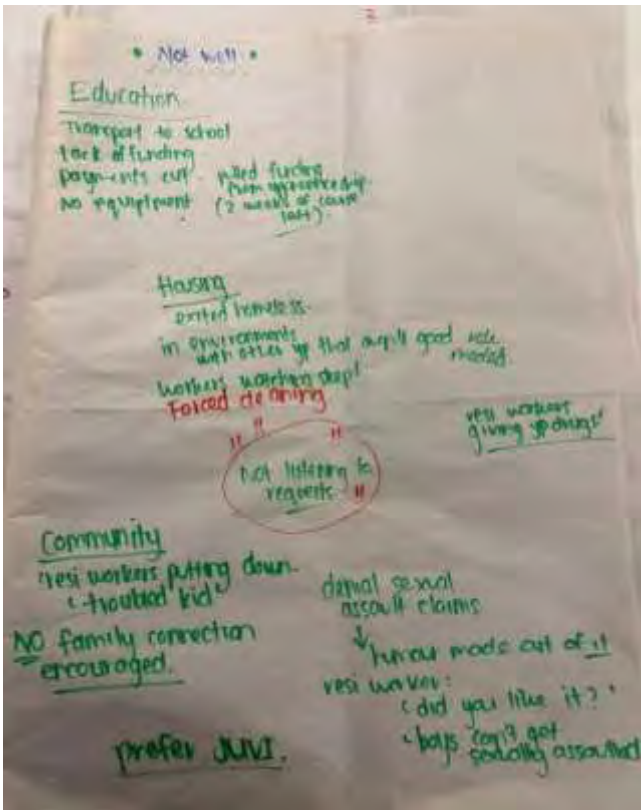 2
• Not well •
Education
Transport to school
lack of funding
payments cut - pulled funding
from apprenticeship
No equiptment (2 weeks of course
left)
Housing
exited homeless.
in environments
with other yp that aren't good role
models
workers watching sleep!
Forced cleaning
!! !! !!
Not listening to
requests !!
resi workers
giving yp drugs!
Community
'resi workers putting down.
'troubled kid'
NO family connection
encouraged.
denial sexual
assault claims
↓
humour made out of it
resi worker:
'did you like it?'
'boys can't get
sexually assaulted
prefer JUVI.